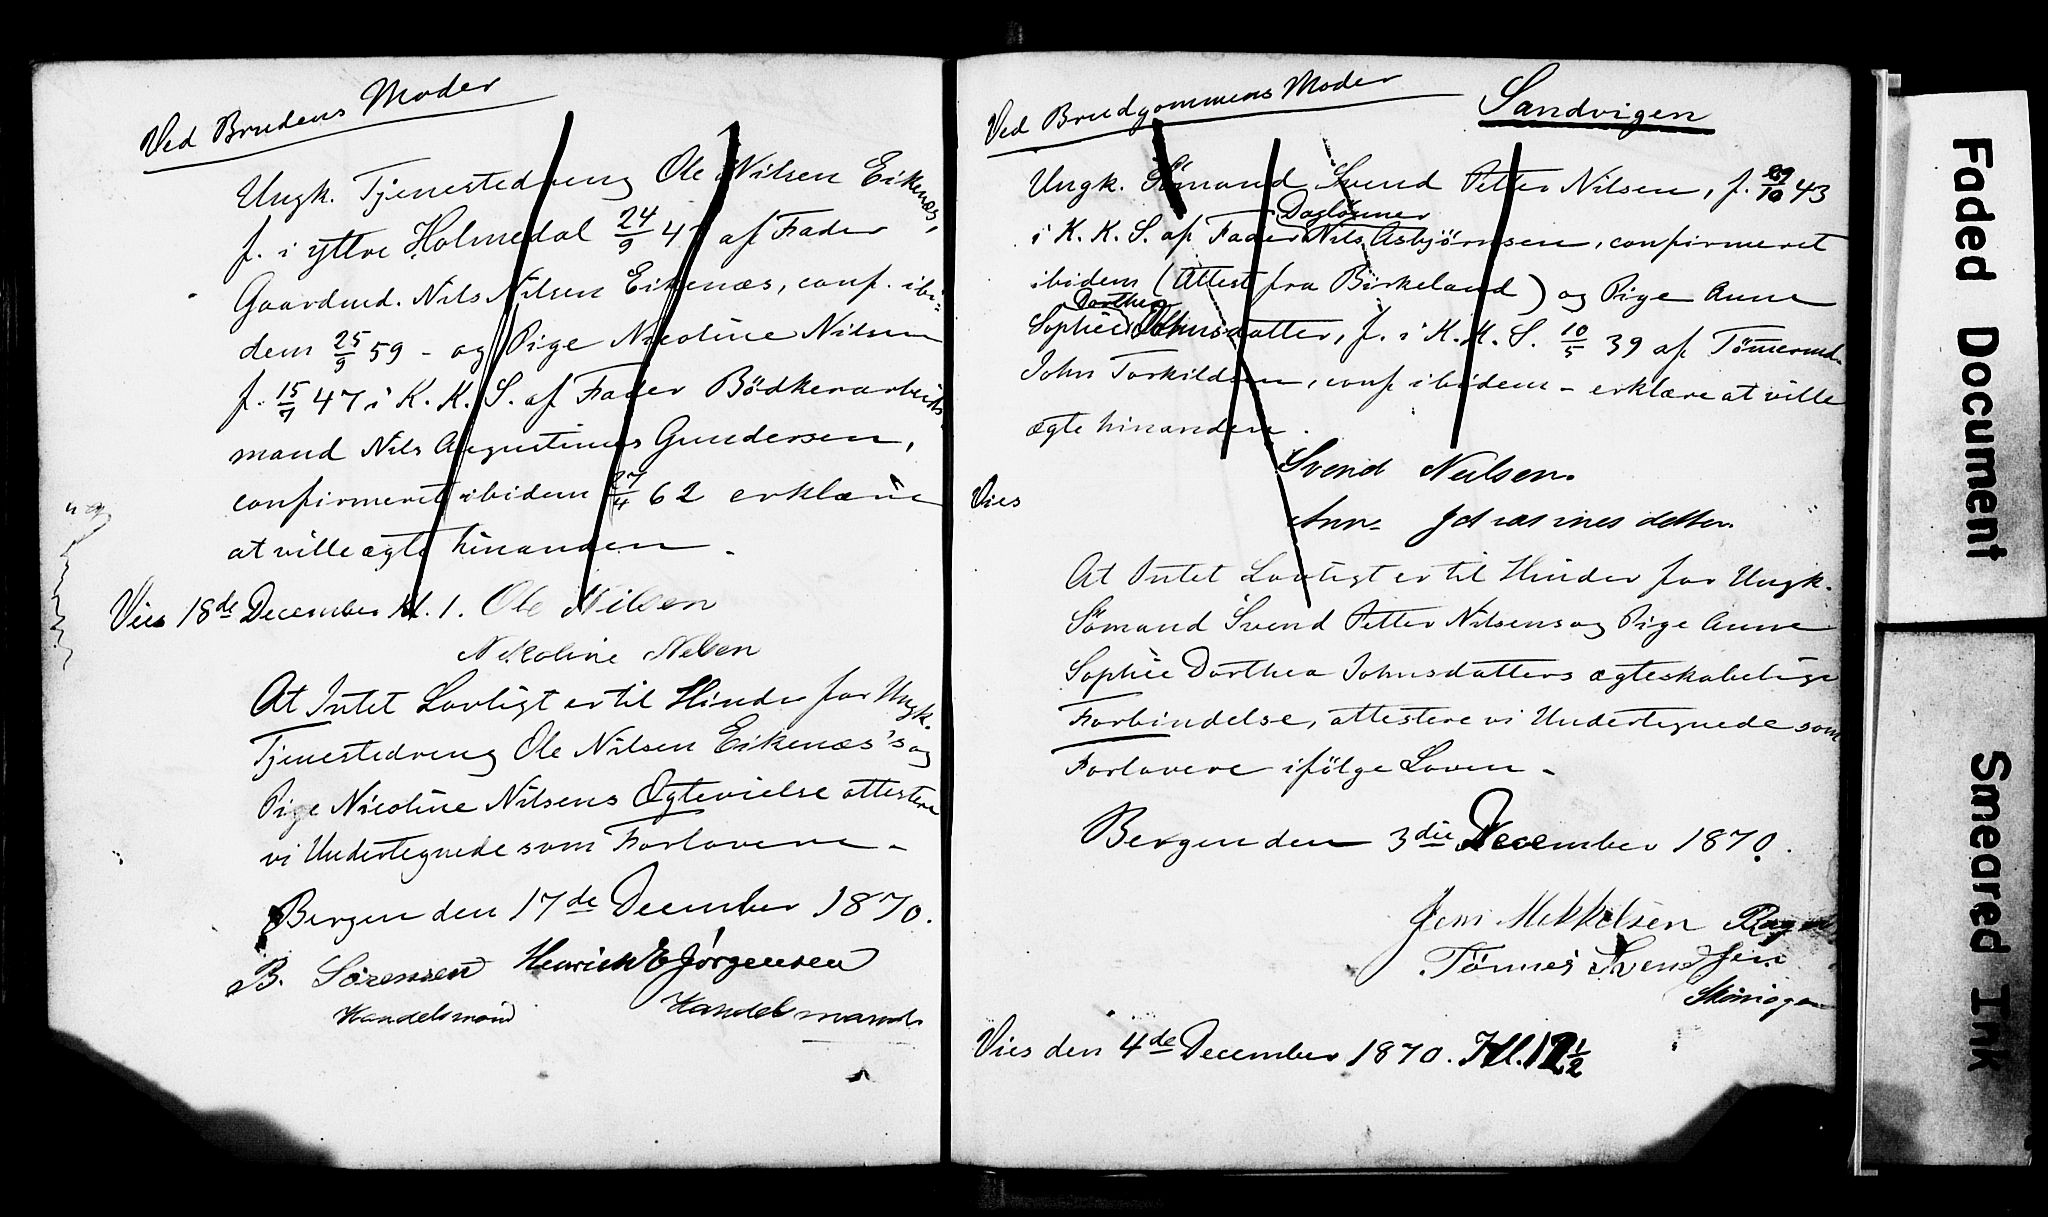 Ved Brudens Moder
Ungk. Tjenestedreng Ole Nilsen Eikenæs,
f. i yttre Holmedal 24/9 4 af Fader
Gaardmd. Nils Nilsen Eikenæs, conf. ibi-
dem 25/9 59 - og Pige Nicoline Nilsen
f. 15/7 47 i K. K. S. af Fader Bödkerarbeids-
mand Nils Augustinus Gundersen,
confirmeret ibidem 27/4 62 erklære
at ville ægte hinanden.
Vies 18de December Kl. 1. Ole Nilsen
Nikoline Nelsen
At Intet Lovligt er til Hinder for Ungk.
Tjenestedreng Ole Nilsen Eikenæs's og
Pige Nicoline Nilsens Ægtevielse attestere
vi Undertegnede som Forlovere -
Bergen den 17de December 1870.
B. Sörensen Henrich E Jørgensen
Handelsmand Handelsmand
Ved Brudgommens Moder
Sandvigen
Ungk. Sömand Svend Petter Nilsen, f. 29/10 43
Daglönner
i K. K. S. af Fader Nils Asbjörnsen, confirmeret
ibidem (Attest fra Birkeland) og Pige Anne
Dorthea
Sophie Johnsdatter, f. i K. K. S. 10/5 39 af Tömermd.
John Torkildsen, conf ibidem - erklære at ville
ægte hinanden.
Svend Nilsen.
Vies
Anne
At Intet Lovligt er til Hinder for Ungk.
Sömand Svend Petter Nilsens og Pige Anne
Sophie Dorthea Johnsdatters ægteskabelige
Forbindelse, attestere vi Undertegnede som
Forlovere ifölge Loven -
Bergen den 3die December 1870.
Jens Mikkelsen
Tönnes Svendsen
Vies den 4de December 1870. Kl. 12 1/2
Faded Document
Smeared Ink